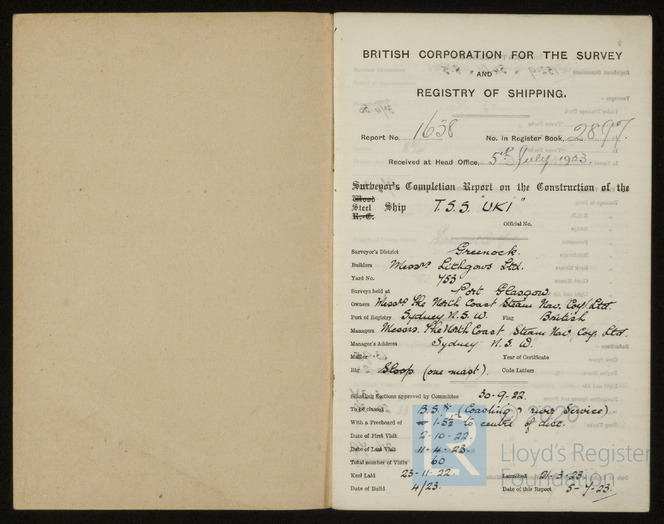 BRITISH CORPORATION FOR THE SURVEY
AND
REGISTRY OF SHIPPING.
Report No. 1638 No. in Register Book, 2897.
Received at Head Office, 5th July 1923.
Surveyor's Completion Report on the Construction of the
Wood
Steel Ship T.S.S. "UKI"
R.C.
Official No.
Surveyor's District Greenock.
Builders Messrs Lithgows Ltd.
Yard No. 755
Surveys held at Port Glasgow.
Owners Messrs The North Coast Steam Nav. Coy. Ltd.
Port of Registry Sydney N.S.W. Flag British
Managers Messrs. The North Coast Steam Nav. Coy. Ltd
Manager's Address Sydney N.S.W.
Master Year of Certificate
Rig Sloop (one mast). Code Letters
Scantling Sections approved by Committee 30-9-22.
To be classed B.S.* (Coasting & river Service)
With a Freeboard of to centre of disc.
Date of First Visit 2-10-22.
Date of Last Visit 11-4-23.
Total number of Visits 60
Keel Laid 23-11-22. Launched 21-3-23.
Date of Build 4/23. Date of this Report 5-7-23.
© 2020
Lloyd's Register
Foundation